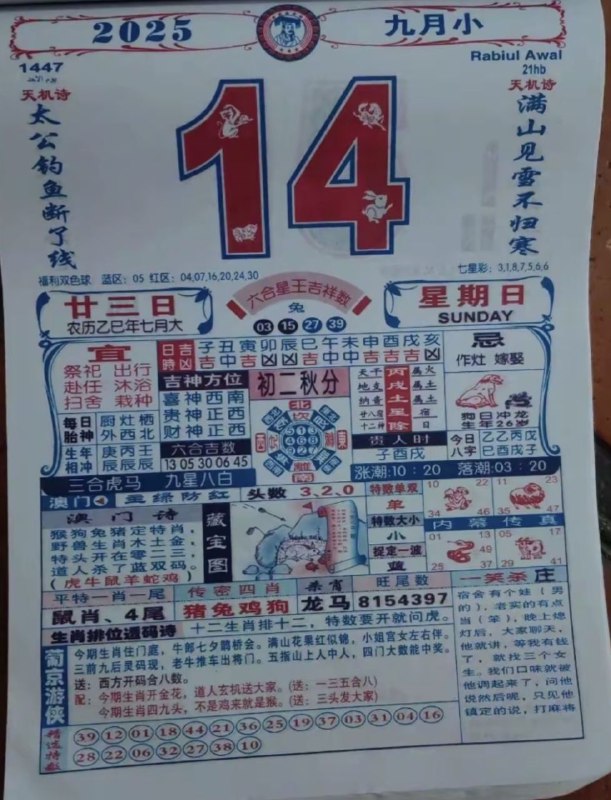 2025
九月小
1447
Rabiul Awal
21hb
天机诗
太公钓鱼断了线
14
天机诗
满山见雪不归寒
福利双色球 蓝区：05 红区：04,07,16,20,24,30
七星彩：3,1,8,7,5,6,6
廿三日
农历乙巳年七月大
六合星王吉祥数
兔
03 15 27 39
星期日
SUNDAY
宜
祭祀 出行
赴任 沐浴
扫舍 栽种
日吉時凶
子丑寅卯辰巳午未申酉戌亥
吉神方位
喜神西南
贵神正西
财神正西
初二秋分
忌
作灶 嫁娶
狗日冲龙
生年26岁
每日胎神
厨灶栖
外西北
生年相冲
庚丙壬
辰辰辰
六合吉数
13 05 30 06 45
北
南
天干 丙 属火
地支 戌 属土
纳音 土
廿八月 星 宿
十二神 除 日
贵人时
子酉戌
今日八字
乙乙丙戊
巳酉戌子
三合虎马 九星八白
涨潮：10：20 落潮：03：20
澳门
头数 3,2,0
澳门诗
猴狗兔猪定特肖，
野兽生肖木土金，
特头开在零二三，
道人杀了蓝双码。
（虎牛鼠羊蛇鸡）
藏宝图
特数单双
单
特数大小
小
捉定一波
蓝
10 22
34 46
11 23
35 47
内幕传真
01 13
37 49
05 17
29 41
平特一肖一尾
鼠肖、4尾
传密四肖
猪兔鸡狗
杀肖
龙马
旺尾数
8154397
生肖排位透码诗
十二生肖排十二，特数要开就问虎。
葡京游侠
今期生肖住门庭，牛郎七夕鹊桥会。满山花果红似锦，小姐宫女左右伴。
三前九后灵码现，老牛推车出将门。五指山上人中人，四门大数能中奖。
送：西方开码合八数。
配：今期生肖开金花，道人玄机送大家。（送：一三五合八）
今期生肖四九头，不是鸡来就是猴。（送：三头发大家）
精选特数
39 12 01 18 44 21 36 25 19 37 03 31 04 16
28 22 06 32 27 38 10
一笑杀庄
宿舍有个娃（男
的），老实的有点
当（笨），晚上熄
灯后，大家聊天，
他就讲，等我有钱
了，就找三个女
生。我们口味就被
他调起来了，问他
说然后呢，只见他
镇定的说，打麻将